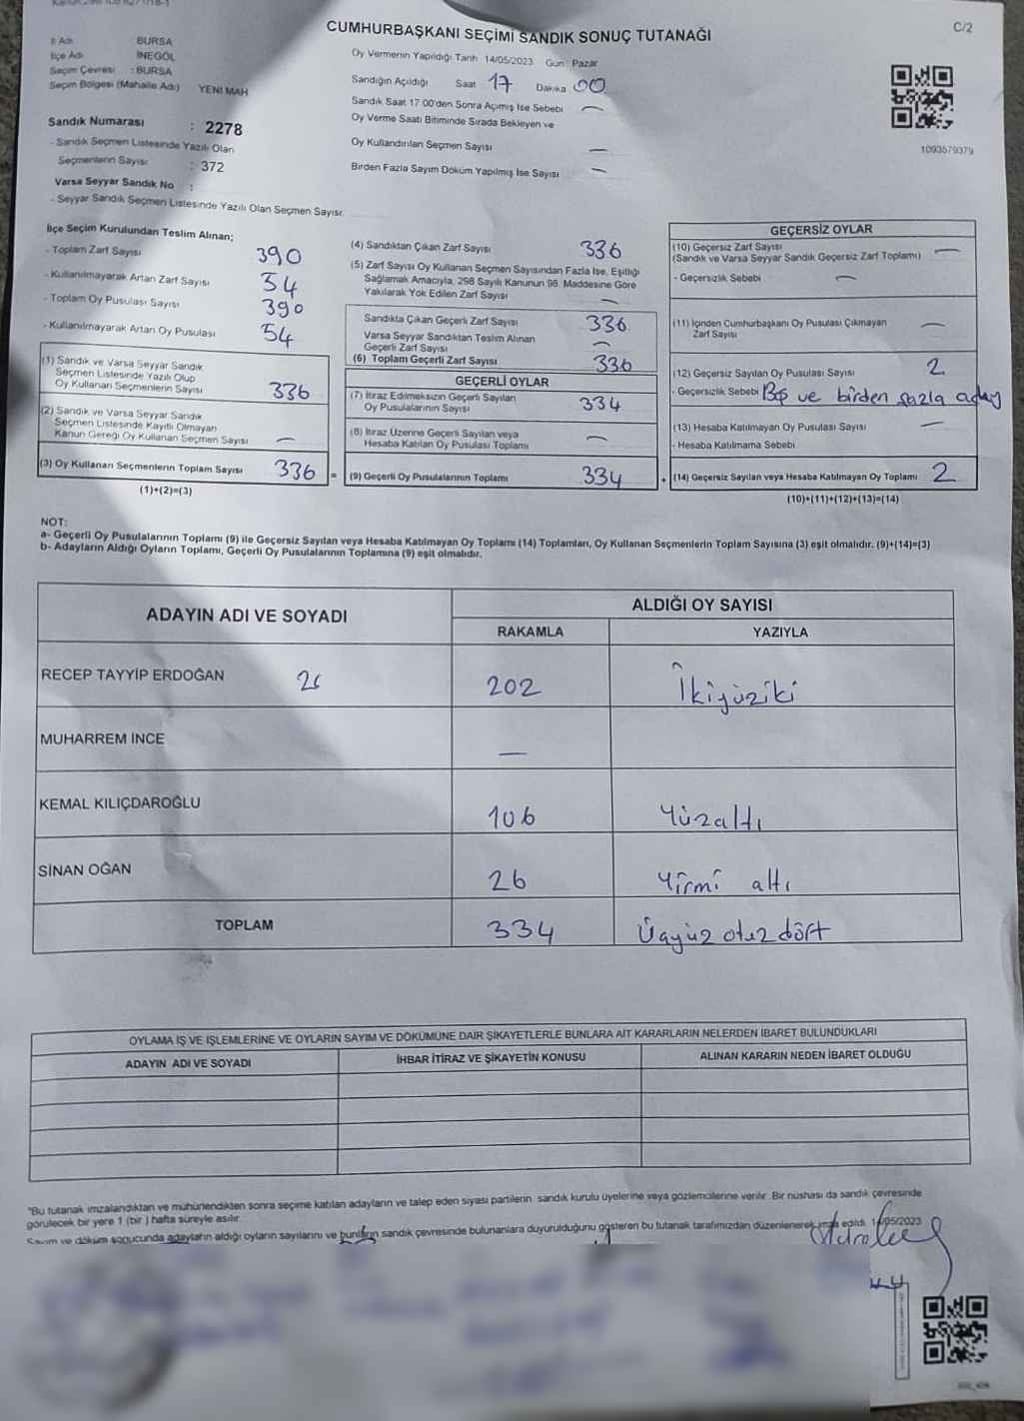 C/2
CUMHURBAŞKANI SEÇİMİ SANDIK SONUÇ TUTANAĞI
İl Adı BURSA
İlçe Adı İNEGÖL
Seçim Çevresi : BURSA
Seçim Bölgesi (Mahalle Adı) YENİ MAH
Oy Vermenin Yapıldığı Tarih 14/05/2023 Gün Pazar
Sandığın Açıldığı Saat 17 Dakika 00
Sandık Saat 17.00'den Sonra Açılmış İse Sebebi —
Oy Verme Saati Bitiminde Sırada Bekleyen ve
Oy Kullandırılan Seçmen Sayısı —
Birden Fazla Sayım Döküm Yapılmış İse Sayısı —
1093579379
Sandık Numarası : 2278
- Sandık Seçmen Listesinde Yazılı Olan
Seçmenlerin Sayısı : 372
Varsa Seyyar Sandık No :
- Seyyar Sandık Seçmen Listesinde Yazılı Olan Seçmen Sayısı:
İlçe Seçim Kurulundan Teslim Alınan;
- Toplam Zarf Sayısı 390
- Kullanılmayarak Artan Zarf Sayısı 54
- Toplam Oy Pusulası Sayısı 390
- Kullanılmayarak Artan Oy Pusulası 54
(1) Sandık ve Varsa Seyyar Sandık
Seçmen Listesinde Yazılı Olup
Oy Kullanan Seçmenlerin Sayısı 336
(2) Sandık ve Varsa Seyyar Sandık
Seçmen Listesinde Kayıtlı Olmayan
Kanun Gereği Oy Kullanan Seçmen Sayısı —
(3) Oy Kullanan Seçmenlerin Toplam Sayısı 336 =
(1)+(2)=(3)
(4) Sandıktan Çıkan Zarf Sayısı 336
(5) Zarf Sayısı Oy Kullanan Seçmen Sayısından Fazla İse, Eşitliği
Sağlamak Amacıyla, 298 Sayılı Kanunun 98. Maddesine Göre
Yakılarak Yok Edilen Zarf Sayısı —
Sandıkta Çıkan Geçerli Zarf Sayısı 336
Varsa Seyyar Sandıktan Teslim Alınan
Geçerli Zarf Sayısı —
(6) Toplam Geçerli Zarf Sayısı 336
GEÇERLİ OYLAR
(7) İtiraz Edilmeksizin Geçerli Sayılan
Oy Pusulalarının Sayısı 334
(8) İtiraz Üzerine Geçerli Sayılan veya
Hesaba Katılan Oy Pusulası Toplamı —
(9) Geçerli Oy Pusulalarının Toplamı 334 +
GEÇERSİZ OYLAR
(10) Geçersiz Zarf Sayısı —
(Sandık ve Varsa Seyyar Sandık Geçersiz Zarf Toplamı)
- Geçersizlik Sebebi —
(11) İçinden Cumhurbaşkanı Oy Pusulası Çıkmayan
Zarf Sayısı —
(12) Geçersiz Sayılan Oy Pusulası Sayısı 2
- Geçersizlik Sebebi Boş ve birden fazla aday
(13) Hesaba Katılmayan Oy Pusulası Sayısı —
- Hesaba Katılmama Sebebi
(14) Geçersiz Sayılan veya Hesaba Katılmayan Oy Toplamı 2
(10)+(11)+(12)+(13)=(14)
NOT:
a- Geçerli Oy Pusulalarının Toplamı (9) ile Geçersiz Sayılan veya Hesaba Katılmayan Oy Toplamı (14) Toplamları, Oy Kullanan Seçmenlerin Toplam Sayısına (3) eşit olmalıdır. (9)+(14)=(3)
b- Adayların Aldığı Oyların Toplamı, Geçerli Oy Pusulalarının Toplamına (9) eşit olmalıdır.
ADAYIN ADI VE SOYADI ALDIĞI OY SAYISI
RAKAMLA YAZIYLA
RECEP TAYYİP ERDOĞAN 26 202 İkiyüziki
MUHARREM İNCE —
KEMAL KILIÇDAROĞLU 106 Yüzaltı
SİNAN OĞAN 26 Yirmi altı
TOPLAM 334 Üçyüz otuz dört
OYLAMA İŞ VE İŞLEMLERİNE VE OYLARIN SAYIM VE DÖKÜMÜNE DAİR ŞİKAYETLERLE BUNLARA AİT KARARLARIN NELERDEN İBARET BULUNDUKLARI
ADAYIN ADI VE SOYADI İHBAR İTİRAZ VE ŞİKAYETİN KONUSU ALINAN KARARIN NEDEN İBARET OLDUĞU
"Bu tutanak imzalandıktan ve mühürlendikten sonra seçime katılan adayların ve talep eden siyasi partilerin sandık kurulu üyelerine veya gözlemcilerine verilir. Bir nüshası da sandık çevresinde
görülecek bir yere 1 (bir ) hafta süreyle asılır.
Sayım ve döküm sonucunda adayların aldığı oyların sayılarını ve bunların sandık çevresinde bulunanlara duyurulduğunu gösteren bu tutanak tarafımızdan düzenlenerek imza edildi. 14/05/2023